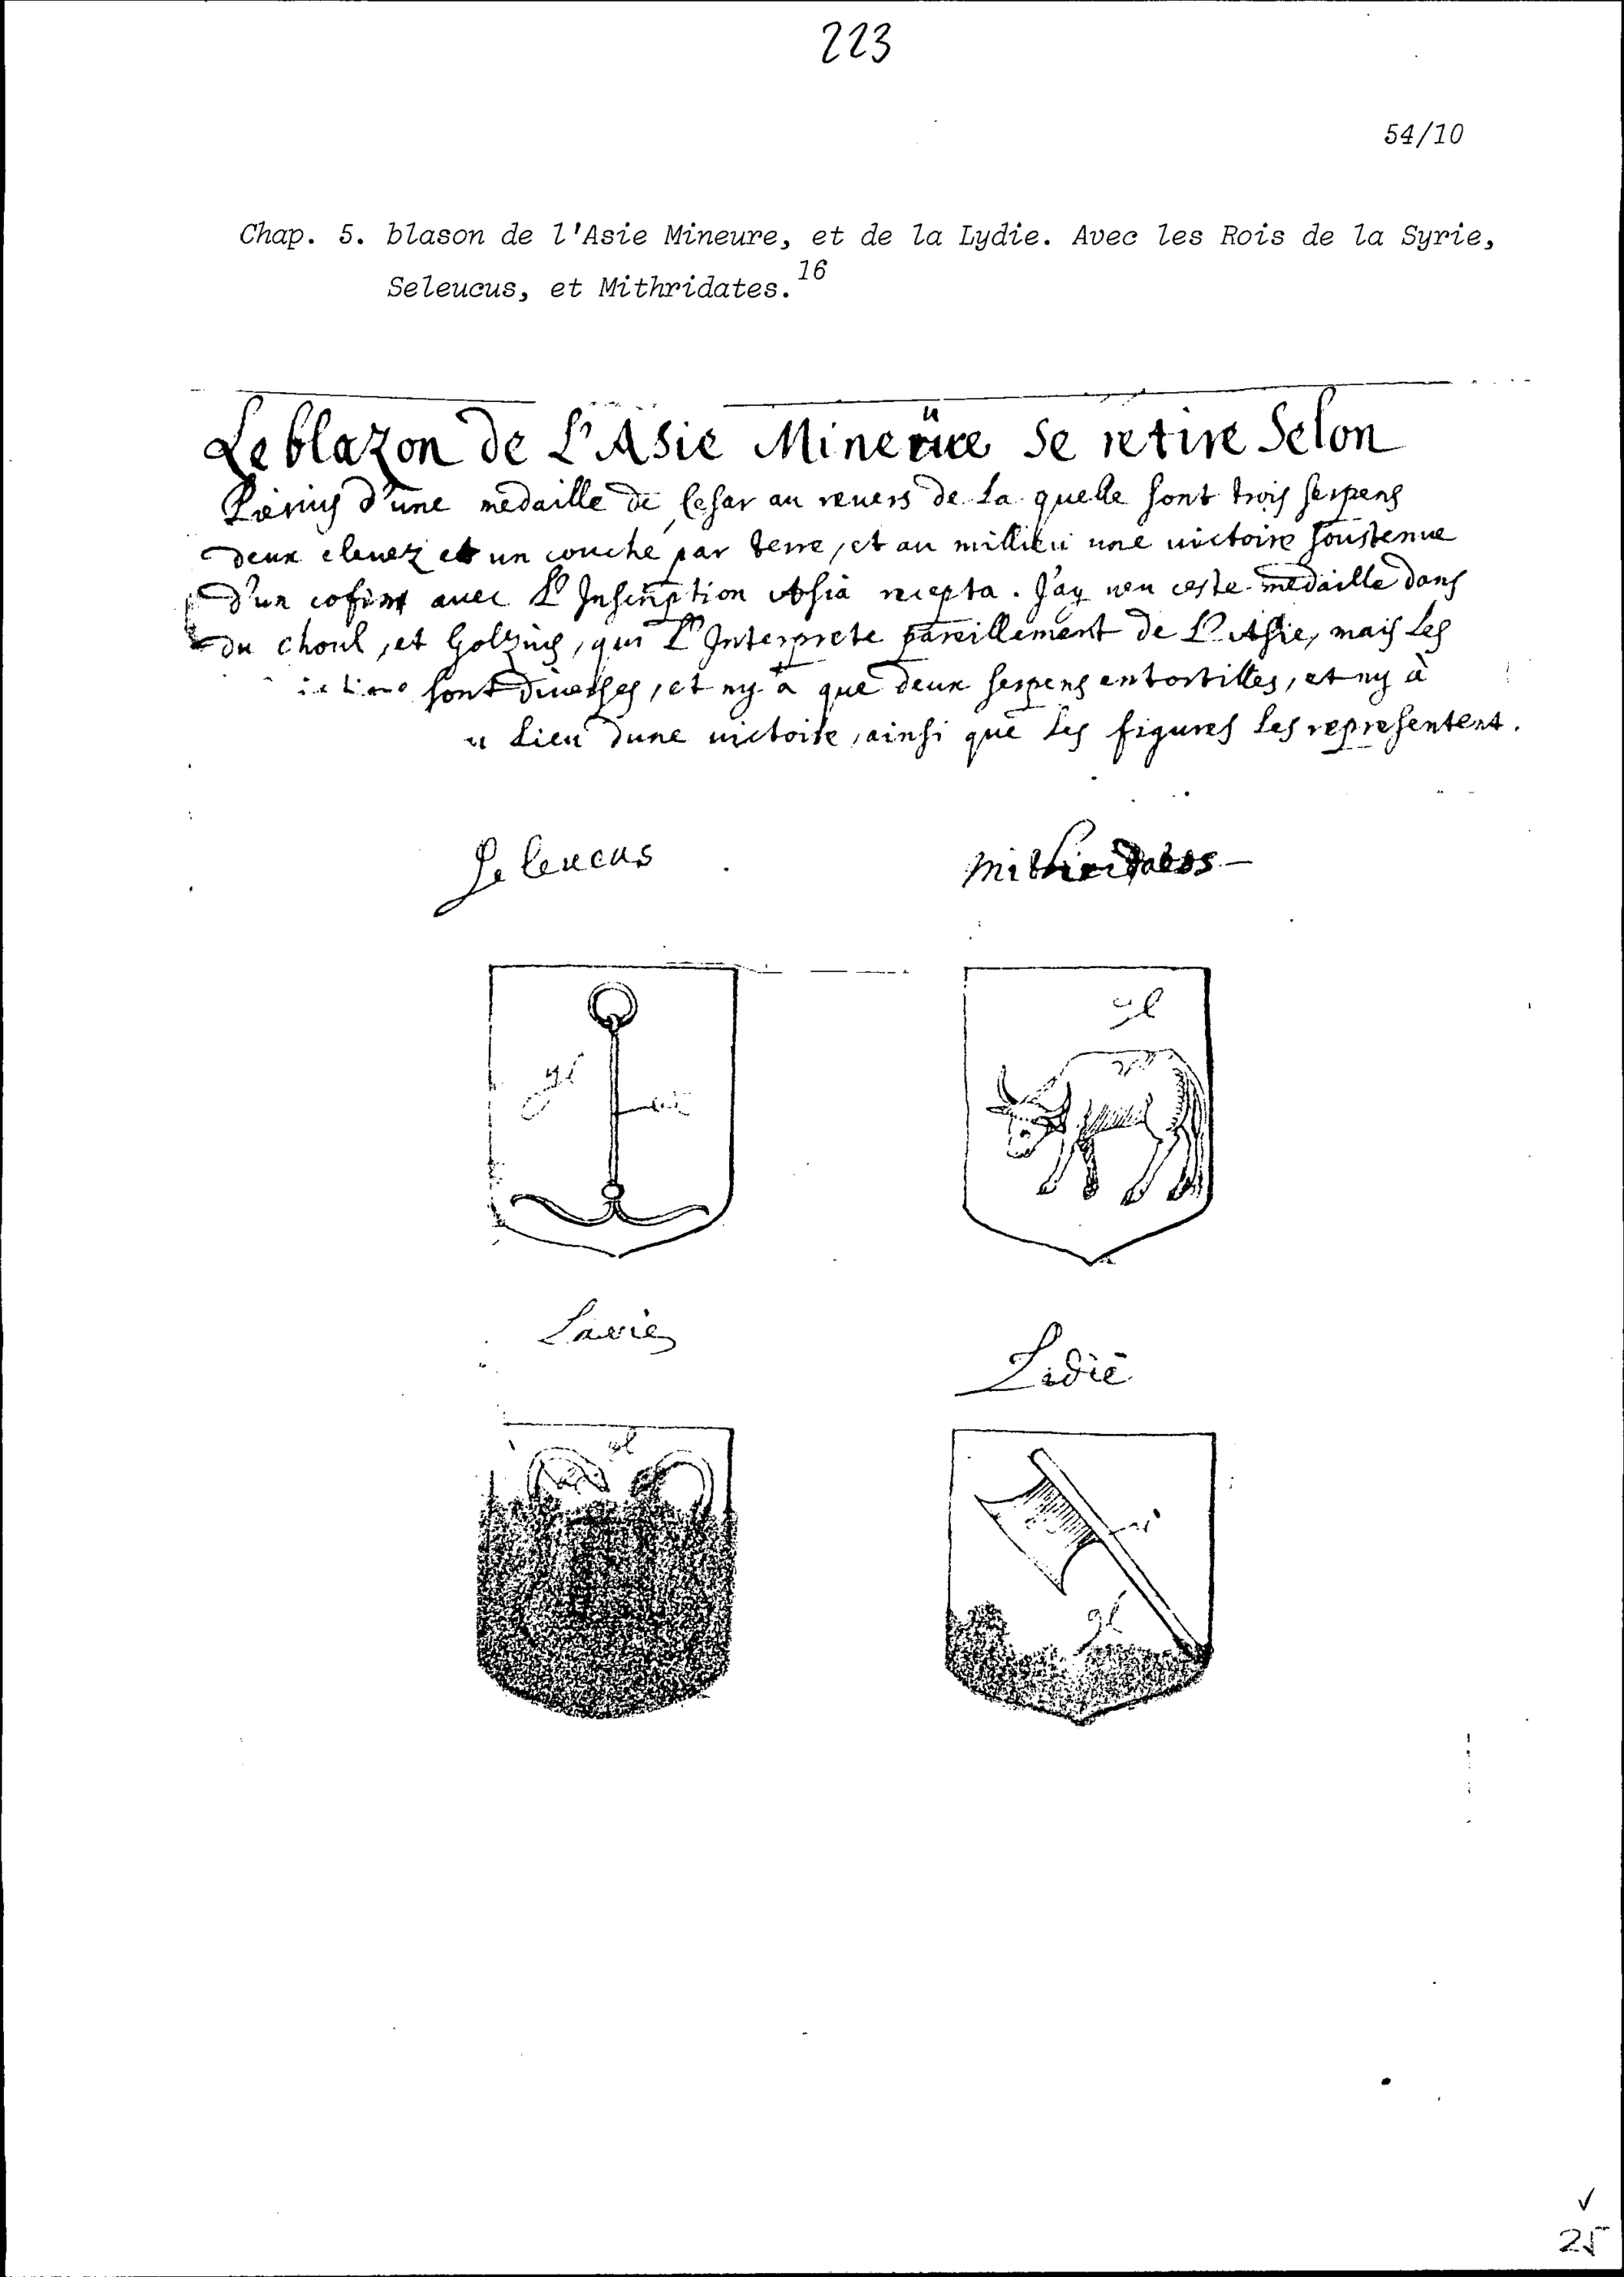 223
54/10
Chap. 5. blason de l'Asie Mineure, et de la Lydie. Avec les Rois de la Syrie,
Seleucus, et Mithridates.16
Le blazon de L'Asie Mineure se retire Selon
Pierius d'une medaille de Cesar au revers de la quelle sont trois serpens
deux elevez et un couché par terre, et au millieu une victoire soustenue
d'un cofin avec L'Inscription Asia recepta. J'ay veu ceste medaille dans
du choul, et Golzius, qui L'Interprete pareillement de L'Asie, mais les
sont diverses, et ny a que deux serpens entortilles, et ny à
lieu dune victoire, ainsi que les figures les representent.
Seleucus
Mithridates
gl
gl
Lidie
gl
gl
25